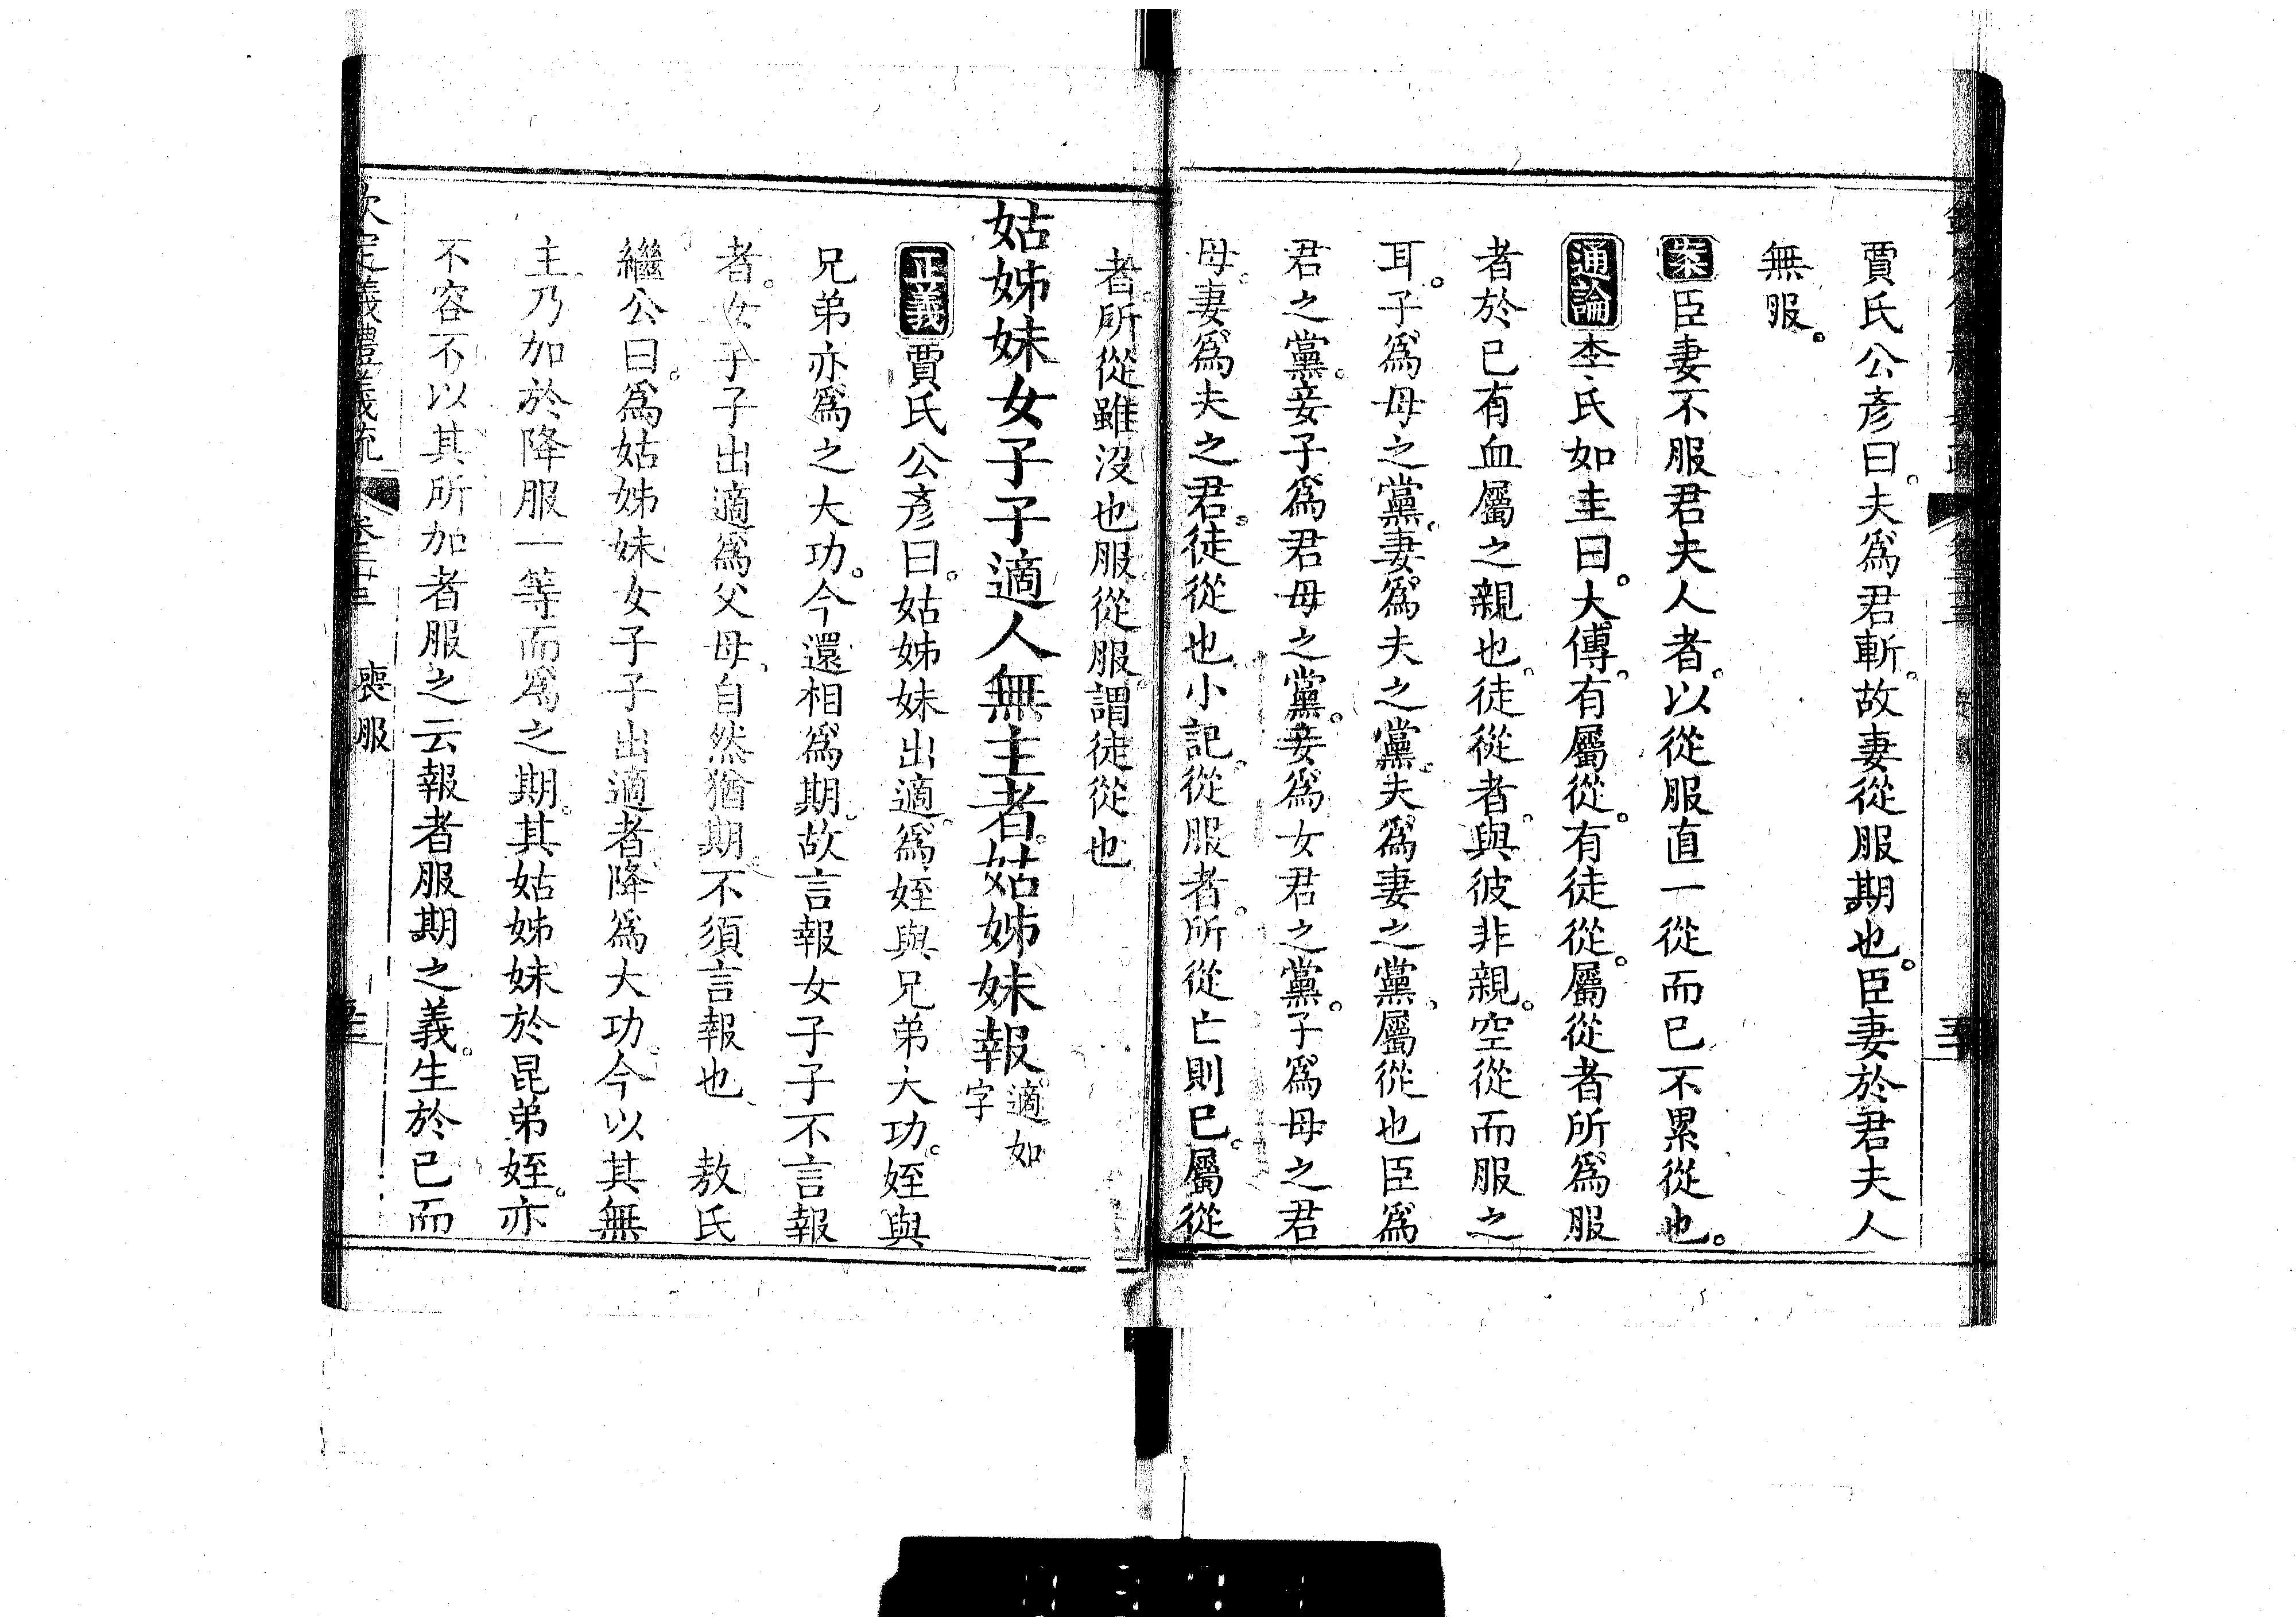 賈氏公彥曰。夫爲君斬。故妻從服期也。臣妻於君夫人
無服。
案臣妻不服君夫人者。以從服直一從而已不累從也。
通論李氏如圭曰。大傳。有屬從。有徒從。屬從者所爲服
者於已有血屬之親也。徒從者。與彼非親。空從而服之
耳。子爲母之黨。妻爲夫之黨。夫爲妻之黨。屬從也臣爲
君之黨。妾子爲君母之黨。妾爲女君之黨。子爲母之君
母。妻爲夫之君。徒從也。小記。從服者。所從亡則已。屬從
者。所從雖沒也服。從服。謂徒從也
姑姊妹女子子適人無主者。姑姊妹報。適如
字
正義賈氏公彥曰。姑姊妹出適。爲姪與兄弟大功。姪與
兄弟亦爲之大功。今還相爲期。故言報女子子不言報
者。女子子出適爲父母。自然猶期。不須言報也 敖氏
繼公曰。爲姑姊妹女子子出適者。降爲大功。今以其無
主。乃加於降服一等而爲之期。其姑姊妹於昆弟姪。亦
不容不以其所加者服之云報者服期之義。生於已而
欽定義禮義疏 卷二十三 喪服